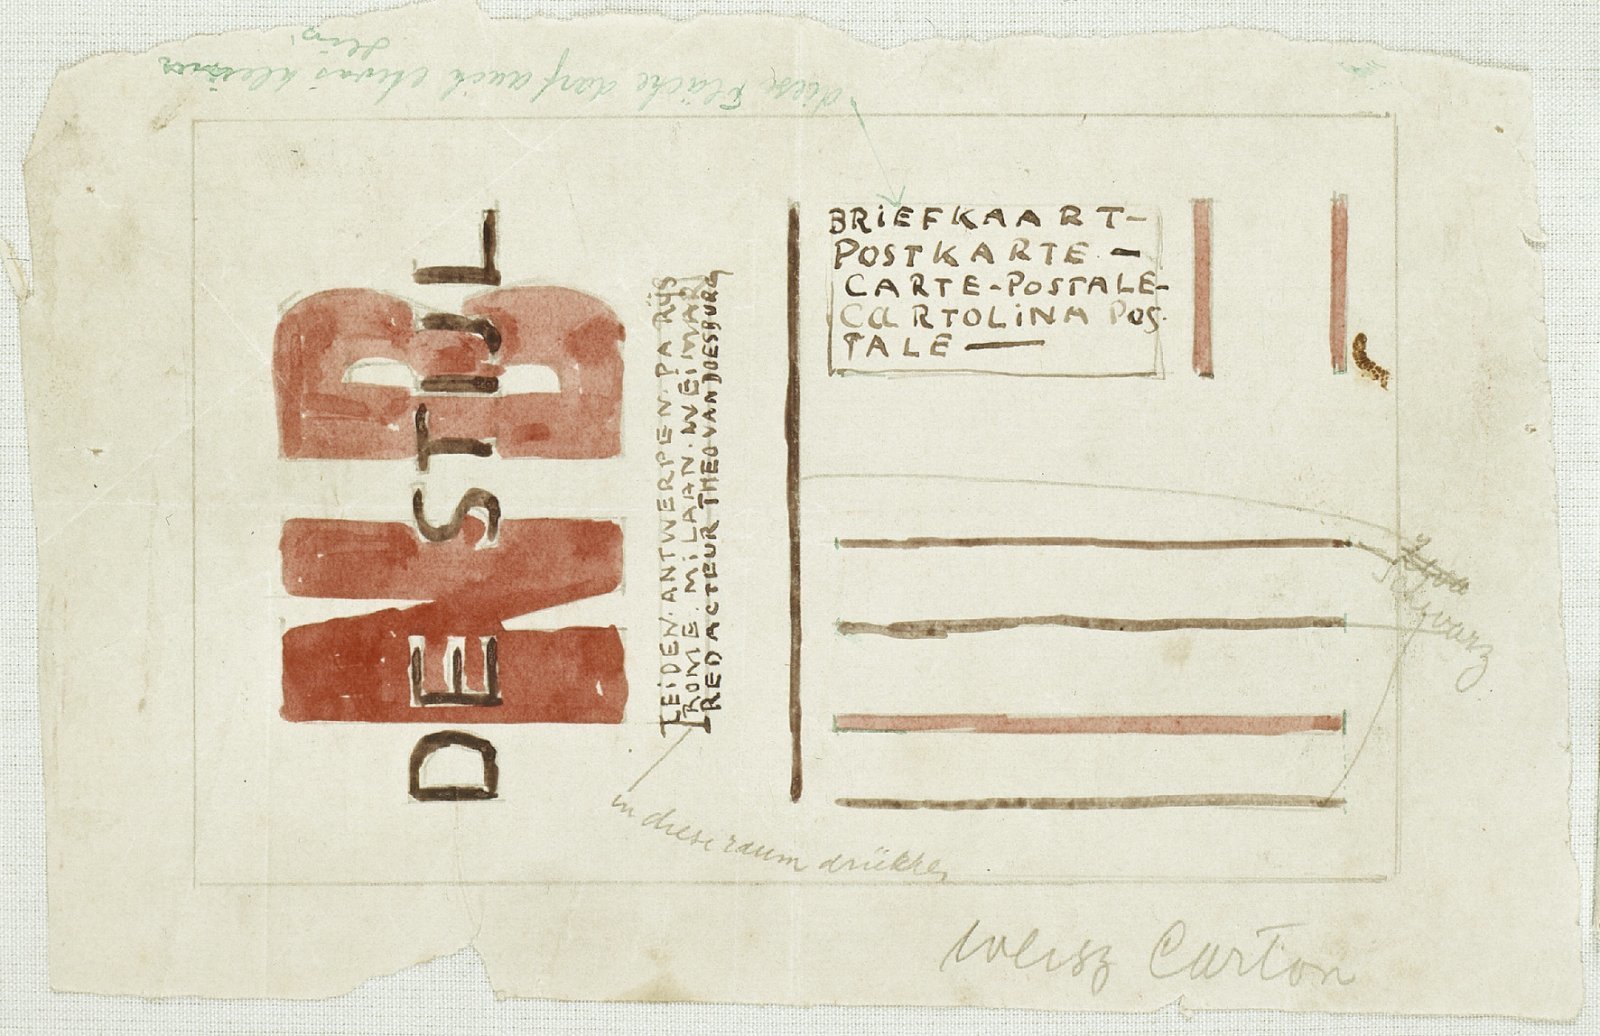 diese Fläche darf auch etwas kleiner
sein
NB
DE STIJL
LEIDEN·ANTWERPEN·PARIJS
ROME·MILAAN·WEIMAR
REDACTEUR THEO VAN DOESBURG
BRiEFKAART-
POSTKARTE-
CARTE-POSTALE-
CaRTOLiNA POS-
TALE—
Schwarz
in diese raum drükken
weisz Carton